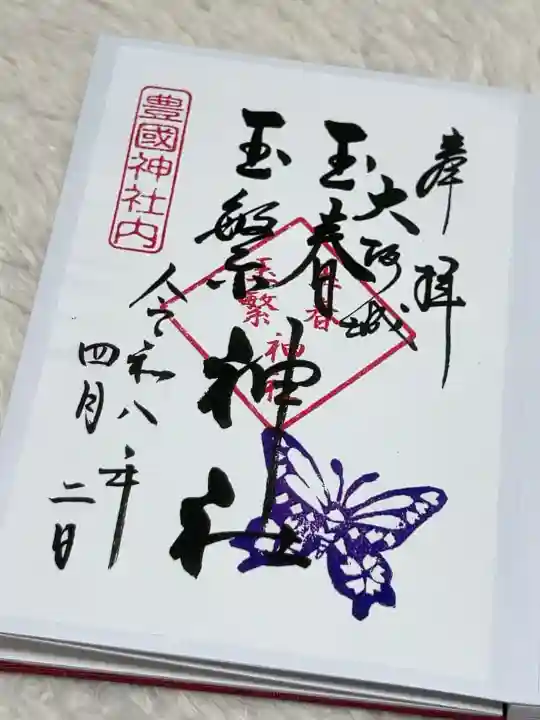 奉拝
大阪城
玉春
玉繁
神社
豊國神社内
令和八年
四月二日
玉春
玉繁
神社